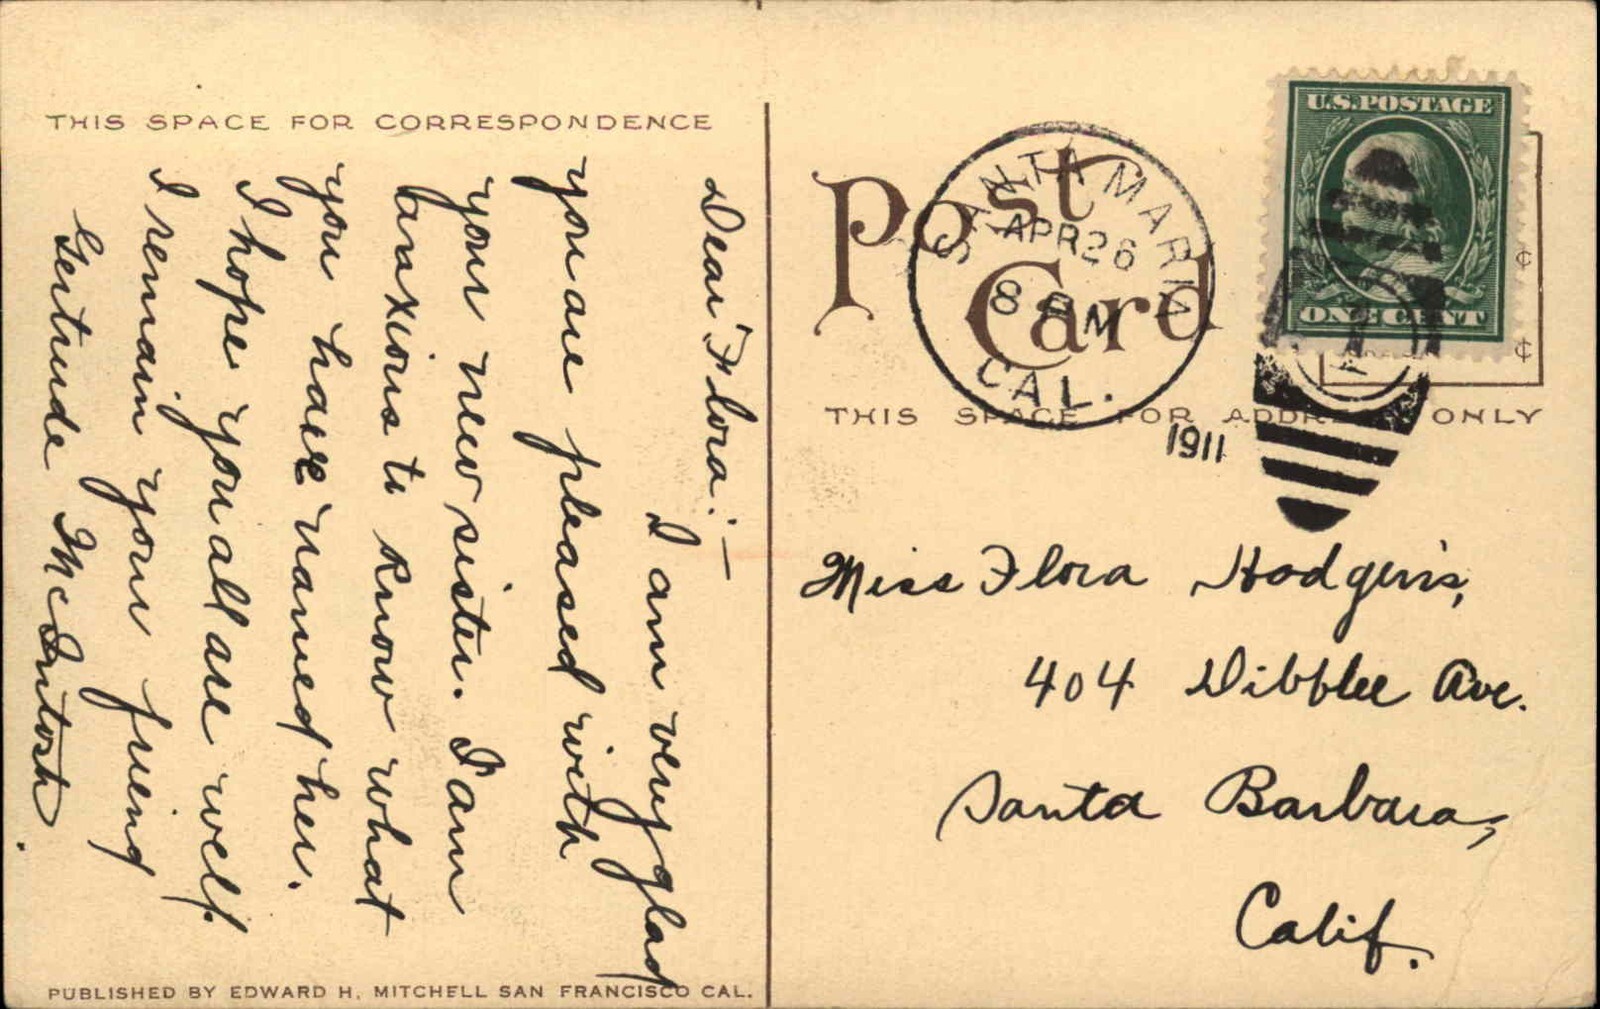 THIS SPACE FOR CORRESPONDENCE
Dear Flora:—
I am very glad
you are pleased with
your new sister. I am
anxious to know what
you have named her.
I hope you all are well.
I remain your friend
Gertrude McIntosh.
PUBLISHED BY EDWARD H. MITCHELL SAN FRANCISCO CAL.
Post
Card
SANTA MARIA
APR 26
8 PM
CAL.
1911
U.S. POSTAGE
ONE CENT
1
¢
¢
THIS SPACE FOR ADDRESS ONLY
Miss Flora Hodgins,
404 Dibblee Ave.
Santa Barbara,
Calif.